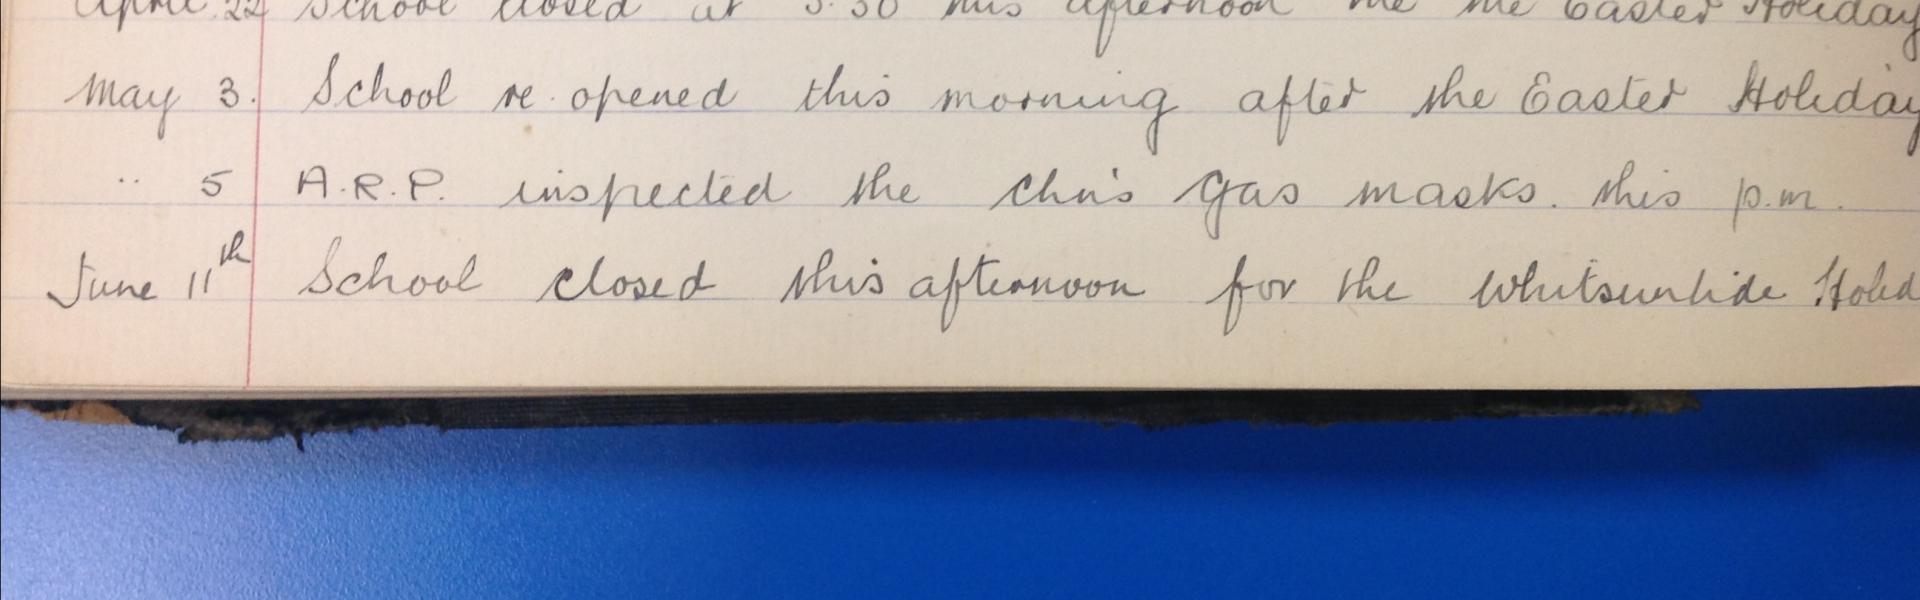 April 22 School closed at 3.30 this afternoon the the Easter Holiday
May 3. School re.opened this morning after the Easter Holiday
.. 5 A.R.P. inspected the chn's gas masks. this p.m.
June 11th School closed this afternoon for the Whitsuntide Holid